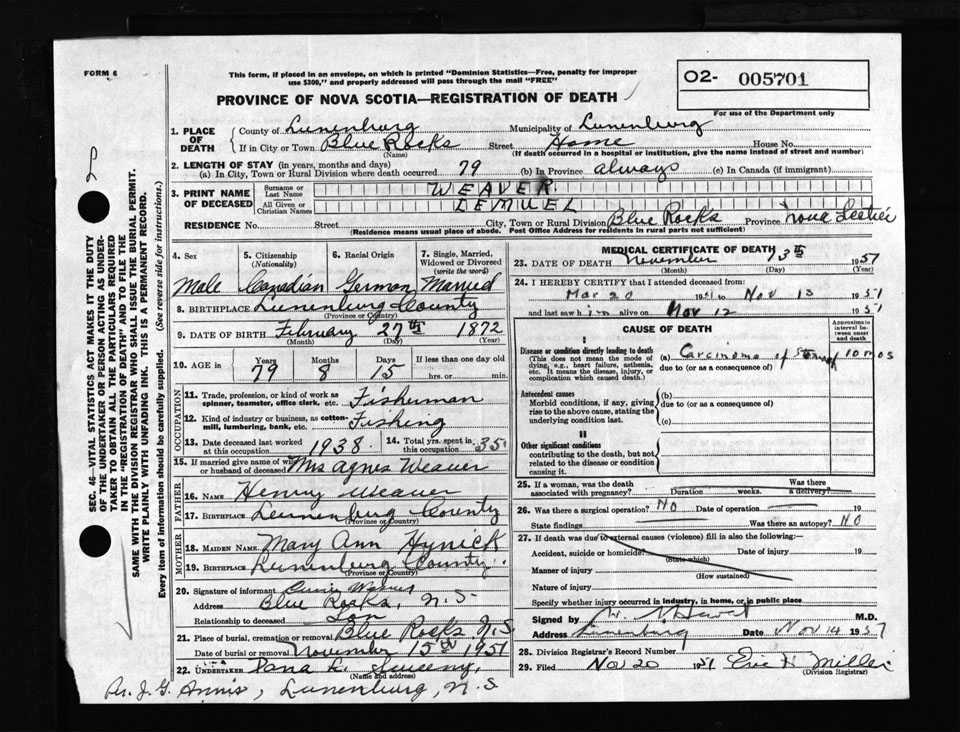 FORM 6
This form, if placed in an envelope, on which is printed "Dominion Statistics—Free, penalty for improper
use $300," and properly addressed will pass through the mail "FREE"
O2- 005701
PROVINCE OF NOVA SCOTIA—REGISTRATION OF DEATH
For use of the Department only
SEC. 46—VITAL STATISTICS ACT MAKES IT THE DUTY
OF THE UNDERTAKER OR PERSON ACTING AS UNDER-
TAKER TO OBTAIN ALL THE PARTICULARS REQUIRED
IN THE "REGISTRATION OF DEATH" AND TO FILE THE
SAME WITH THE DIVISION REGISTRAR WHO SHALL ISSUE THE BURIAL PERMIT.
WRITE PLAINLY WITH UNFADING INK. THIS IS A PERMANENT RECORD.
Every item of information should be carefully supplied. (See reverse side for instructions.)
1. PLACE OF DEATH County of Lunenburg Municipality of Lunenburg
If in City or Town Blue Rocks Street Home House No.
(Name) (If death occurred in a hospital or institution, give the name instead of street and number)
2. LENGTH OF STAY (in years, months and days)
(a) In City, Town or Rural Division where death occurred 79 (b) In Province always (c) In Canada (if immigrant)
3. PRINT NAME OF DECEASED Surname or Last Name WEAVER
All Given or Christian Names LEMUEL
RESIDENCE No. Street City, Town or Rural Division Blue Rocks Province Nova Scotia
(Residence means usual place of abode. Post Office Address for residents in rural parts not sufficient)
4. Sex 5. Citizenship (Nationality) 6. Racial Origin 7. Single, Married, Widowed or Divorced (write the word)
Male Canadian German Married
8. BIRTHPLACE Lunenburg County
(Province or Country)
9. DATE OF BIRTH February 27th 1872
(Month) (Day) (Year)
10. AGE in Years Months Days If less than one day old
79 8 15 hrs. or min.
OCCUPATION
11. Trade, profession, or kind of work as spinner, teamster, office clerk, etc. Fisherman
12. Kind of industry or business, as cotton-mill, lumbering, bank, etc. Fishing
13. Date deceased last worked at this occupation 1938 14. Total yrs. spent in this occupation 35
15. If married give name of wife or husband of deceased Mrs Agnes Weaver
FATHER
16. NAME Henry Weaver
17. BIRTHPLACE Lunenburg County
(Province or Country)
MOTHER
18. MAIDEN NAME Mary Ann Hynick
19. BIRTHPLACE Lunenburg County
(Province or Country)
20. Signature of informant Weaver
Address Blue Rocks, N.S.
Relationship to deceased Son
21. Place of burial, cremation or removal Blue Rocks N.S
Date of burial or removal November 15th 1951
22. UNDERTAKER Dana L. Sweeny,
(Name and address)
Lunenburg, N.S
MEDICAL CERTIFICATE OF DEATH
23. DATE OF DEATH November 13th 1951
(Month) (Day) (Year)
24. I HEREBY CERTIFY that I attended deceased from:
Mar 20 1951 to Nov 13 1951
and last saw him alive on Nov 12 1951
CAUSE OF DEATH
Approximate interval between onset and death
I
Disease or condition directly leading to death (a) Carcinoma of Stomach 10 mos
(This does not mean the mode of dying, e.g., heart failure, asthenia, etc. It means the disease, injury, or complication which caused death.)
due to (or as a consequence of)
Antecedent causes (b)
Morbid conditions, if any, giving rise to the above cause, stating the underlying condition last.
due to (or as a consequence of)
(c)
II
Other significant conditions
contributing to the death, but not related to the disease or condition causing it.
25. If a woman, was the death associated with pregnancy? Duration weeks. Was there a delivery?
26. Was there a surgical operation? No Date of operation 19
State findings Was there an autopsy? No
27. If death was due to external causes (violence) fill in also the following:—
Accident, suicide or homicide? Date of injury 19
(State which)
Manner of injury
(How sustained)
Nature of injury
Specify whether injury occurred in industry, in home, or in public place
Signed by M.D.
Address Lunenburg Date Nov 14 1951
28. Division Registrar's Record Number
29. Filed Nov 20 1951 Eric H. Miller
(Division Registrar)